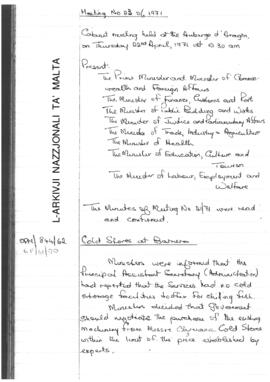 Meeting No 23 of 1971
Cabinet meeting held at the Auberge d'Aragon,
on Thursday 22nd April, 1971 at 9.30 am
Present:
The Prime Minister and Minister of Common-
wealth and Foreign Affairs
The Minister of Finance, Customs and Port
The Minister of Public Building and Works
The Minister of Justice and Parliamentary Affairs
The Minister of Trade, Industry & Agriculture
The Minister of Health
The Minister of Education, Culture and
Tourism
The Minister of Labour, Employment and
Welfare
The Minutes of Meeting No were read
and confirmed.
Cold Stores at
Ministers were informed that the
Principal Assistant Secretary (Administration)
had reported that the Services had no cold
storage facilities to offer for fish.
Ministers decided that Government
should negotiate the purchase of the
machinery from Messrs Cold Stores
within the limit of the price established by
experts.
L-ARKIVJI NAZZJONALI TA' MALTA
OPM/844/62